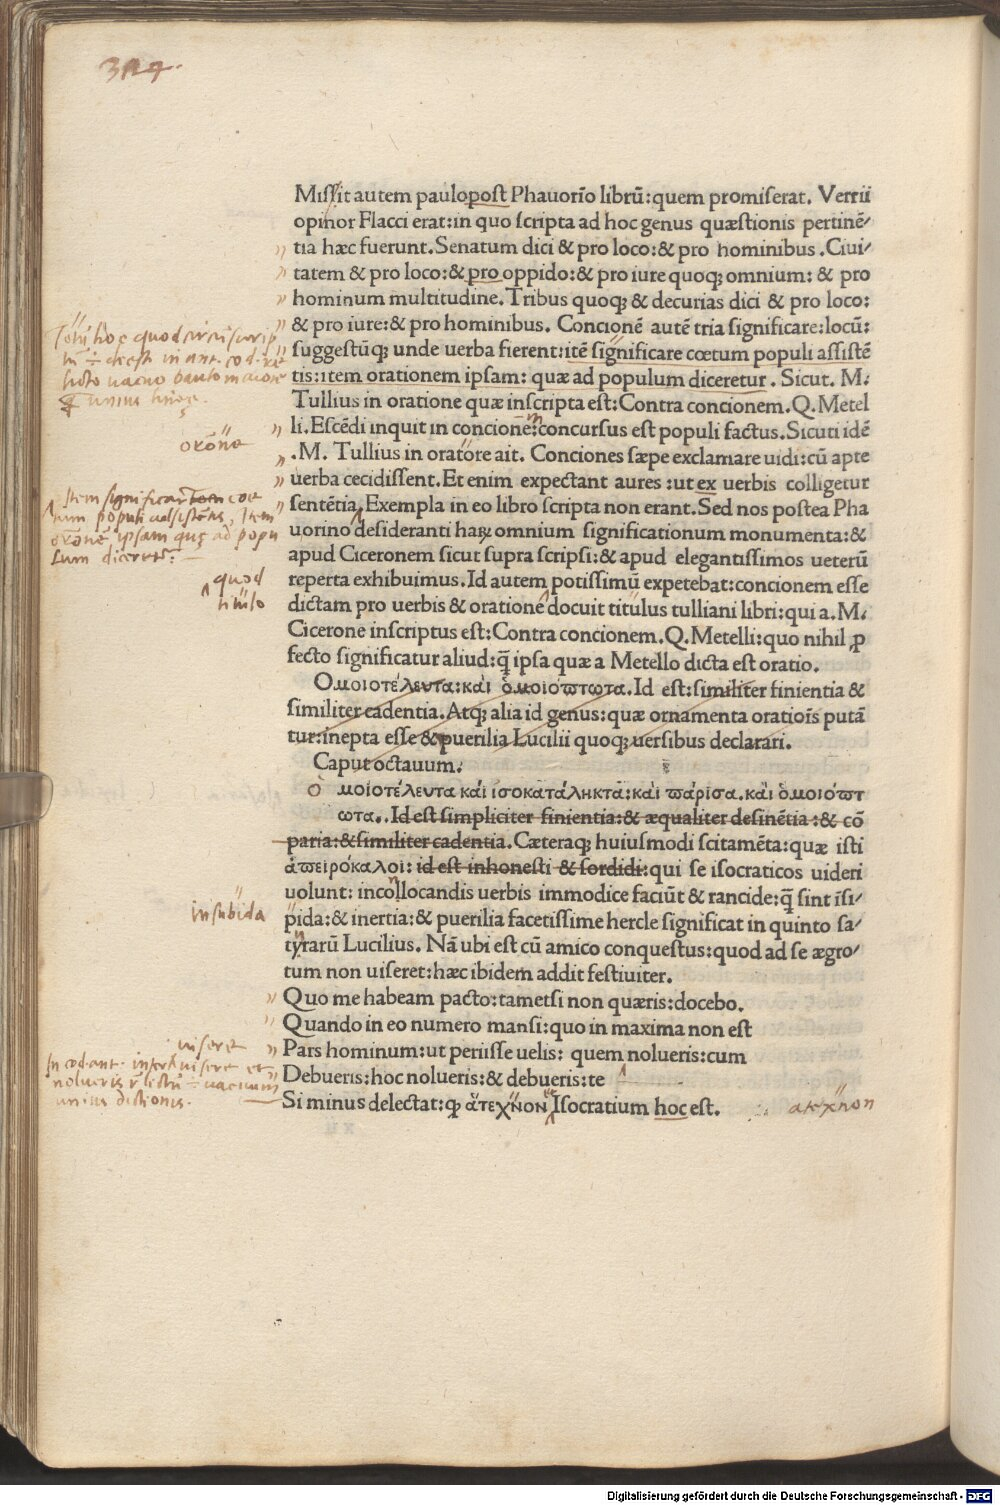 Missit autem paulopost Phauorīo librū:quem promiserat. Verrii
opinor Flacci erat:in quo scripta ad hoc genus quæstionis pertinē/
tia hæc fuerunt.Senatum dici & pro loco:& pro hominibus .Ciui/
tatem & pro loco:& pro oppido:& pro iure quoqꝫ omnium: & pro
hominum multitudine.Tribus quoqꝫ & decurias dici & pro loco:
& pro iure:& pro hominibus. Concionē autē tria significare:locū:
suggestūqꝫ unde uerba fierent:itē significare cœtum populi assistē
tis:item orationem ipsam: quæ ad populum diceretur . Sicut. M.
Tullius in oratione quæ inscripta est:Contra concionem.Q.Metel
li.Escēdi inquit in concionē:concursus est populi factus.Sicuti idē
.M. Tullius in oratōre ait. Conciones sæpe exclamare uidi:cū apte
uerba cecidissent.Et enim expectant aures :ut ex uerbis colligetur
sentētia.Exempla in eo libro scripta non erant.Sed nos postea Pha
uorino desideranti haꝝ omnium significationum monumenta:&
apud Ciceronem sicut supra scripsi:& apud elegantissimos ueterū
reperta exhibuimus.Id autem potissimū expetebat:concionem esse
dictam pro uerbis & oratione docuit titulus tulliani libri:qui a.M.
Cicerone inscriptus est:Contra concionem.Q.Metelli:quo nihil ꝓ
fecto significatur aliud:q̄ ipsa quæ a Metello dicta est oratio.
Ομοιοτέλευτα:και ὁμοιόπτωτα.Id est:similiter finientia &
similiter cadentia.Atqꝫ alia id genus:quæ ornamenta oratiōis putā
tur:inepta esse & puerilia Lucilii quoqꝫ uersibus declarari.
Caput octauum.
ὁ μοιοτέλευτα και ισοκατάληκτα:και πάρισα.και ὁμοιόπτ
ωτα..Id est simpliciter finientia:& æqualiter desinētia :& cō
paria:& similiter cadentia.Cæteraqꝫ huiusmodi scitamēta:quæ isti
ἀπειρόκαλοι: id est inhonesti & sordidi:qui se isocraticos uideri
uolunt: incollocandis uerbis immodice faciūt & rancide:q̄ sint īsi/
pida:& inertia:& puerilia facetissime hercle significat in quinto sa/
tyrarū Lucilius. Nā ubi est cū amico conquestus:quod ad se ægro/
tum non uiseret:hæc ibidem addit festiuiter.
Quo me habeam pacto:tametsi non quæris:docebo.
Quando in eo numero mansi:quo in maxima non est
Pars hominum:ut periisse uelis: quem nolueris:cum
Debueris:hoc nolueris:& debueris:te
Si minus delectat:qꝫ ἄτεχνον Isocratium hoc est.
orōne
Item significare coe
tum populi assistētis, Item
orōnē ipsam quę ad popu
lum diceret̄:
quod
titulo
insubida
uisere
atexnon
Digitalisierung gefördert durch die Deutsche Forschungsgemeinschaft - DFG